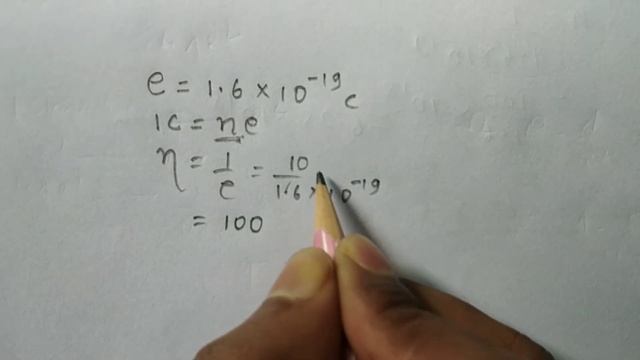 e = 1.6 × 10⁻¹⁹ c
1C = ne
n = 1/e = 10/1.6 × 10⁻¹⁹
= 100